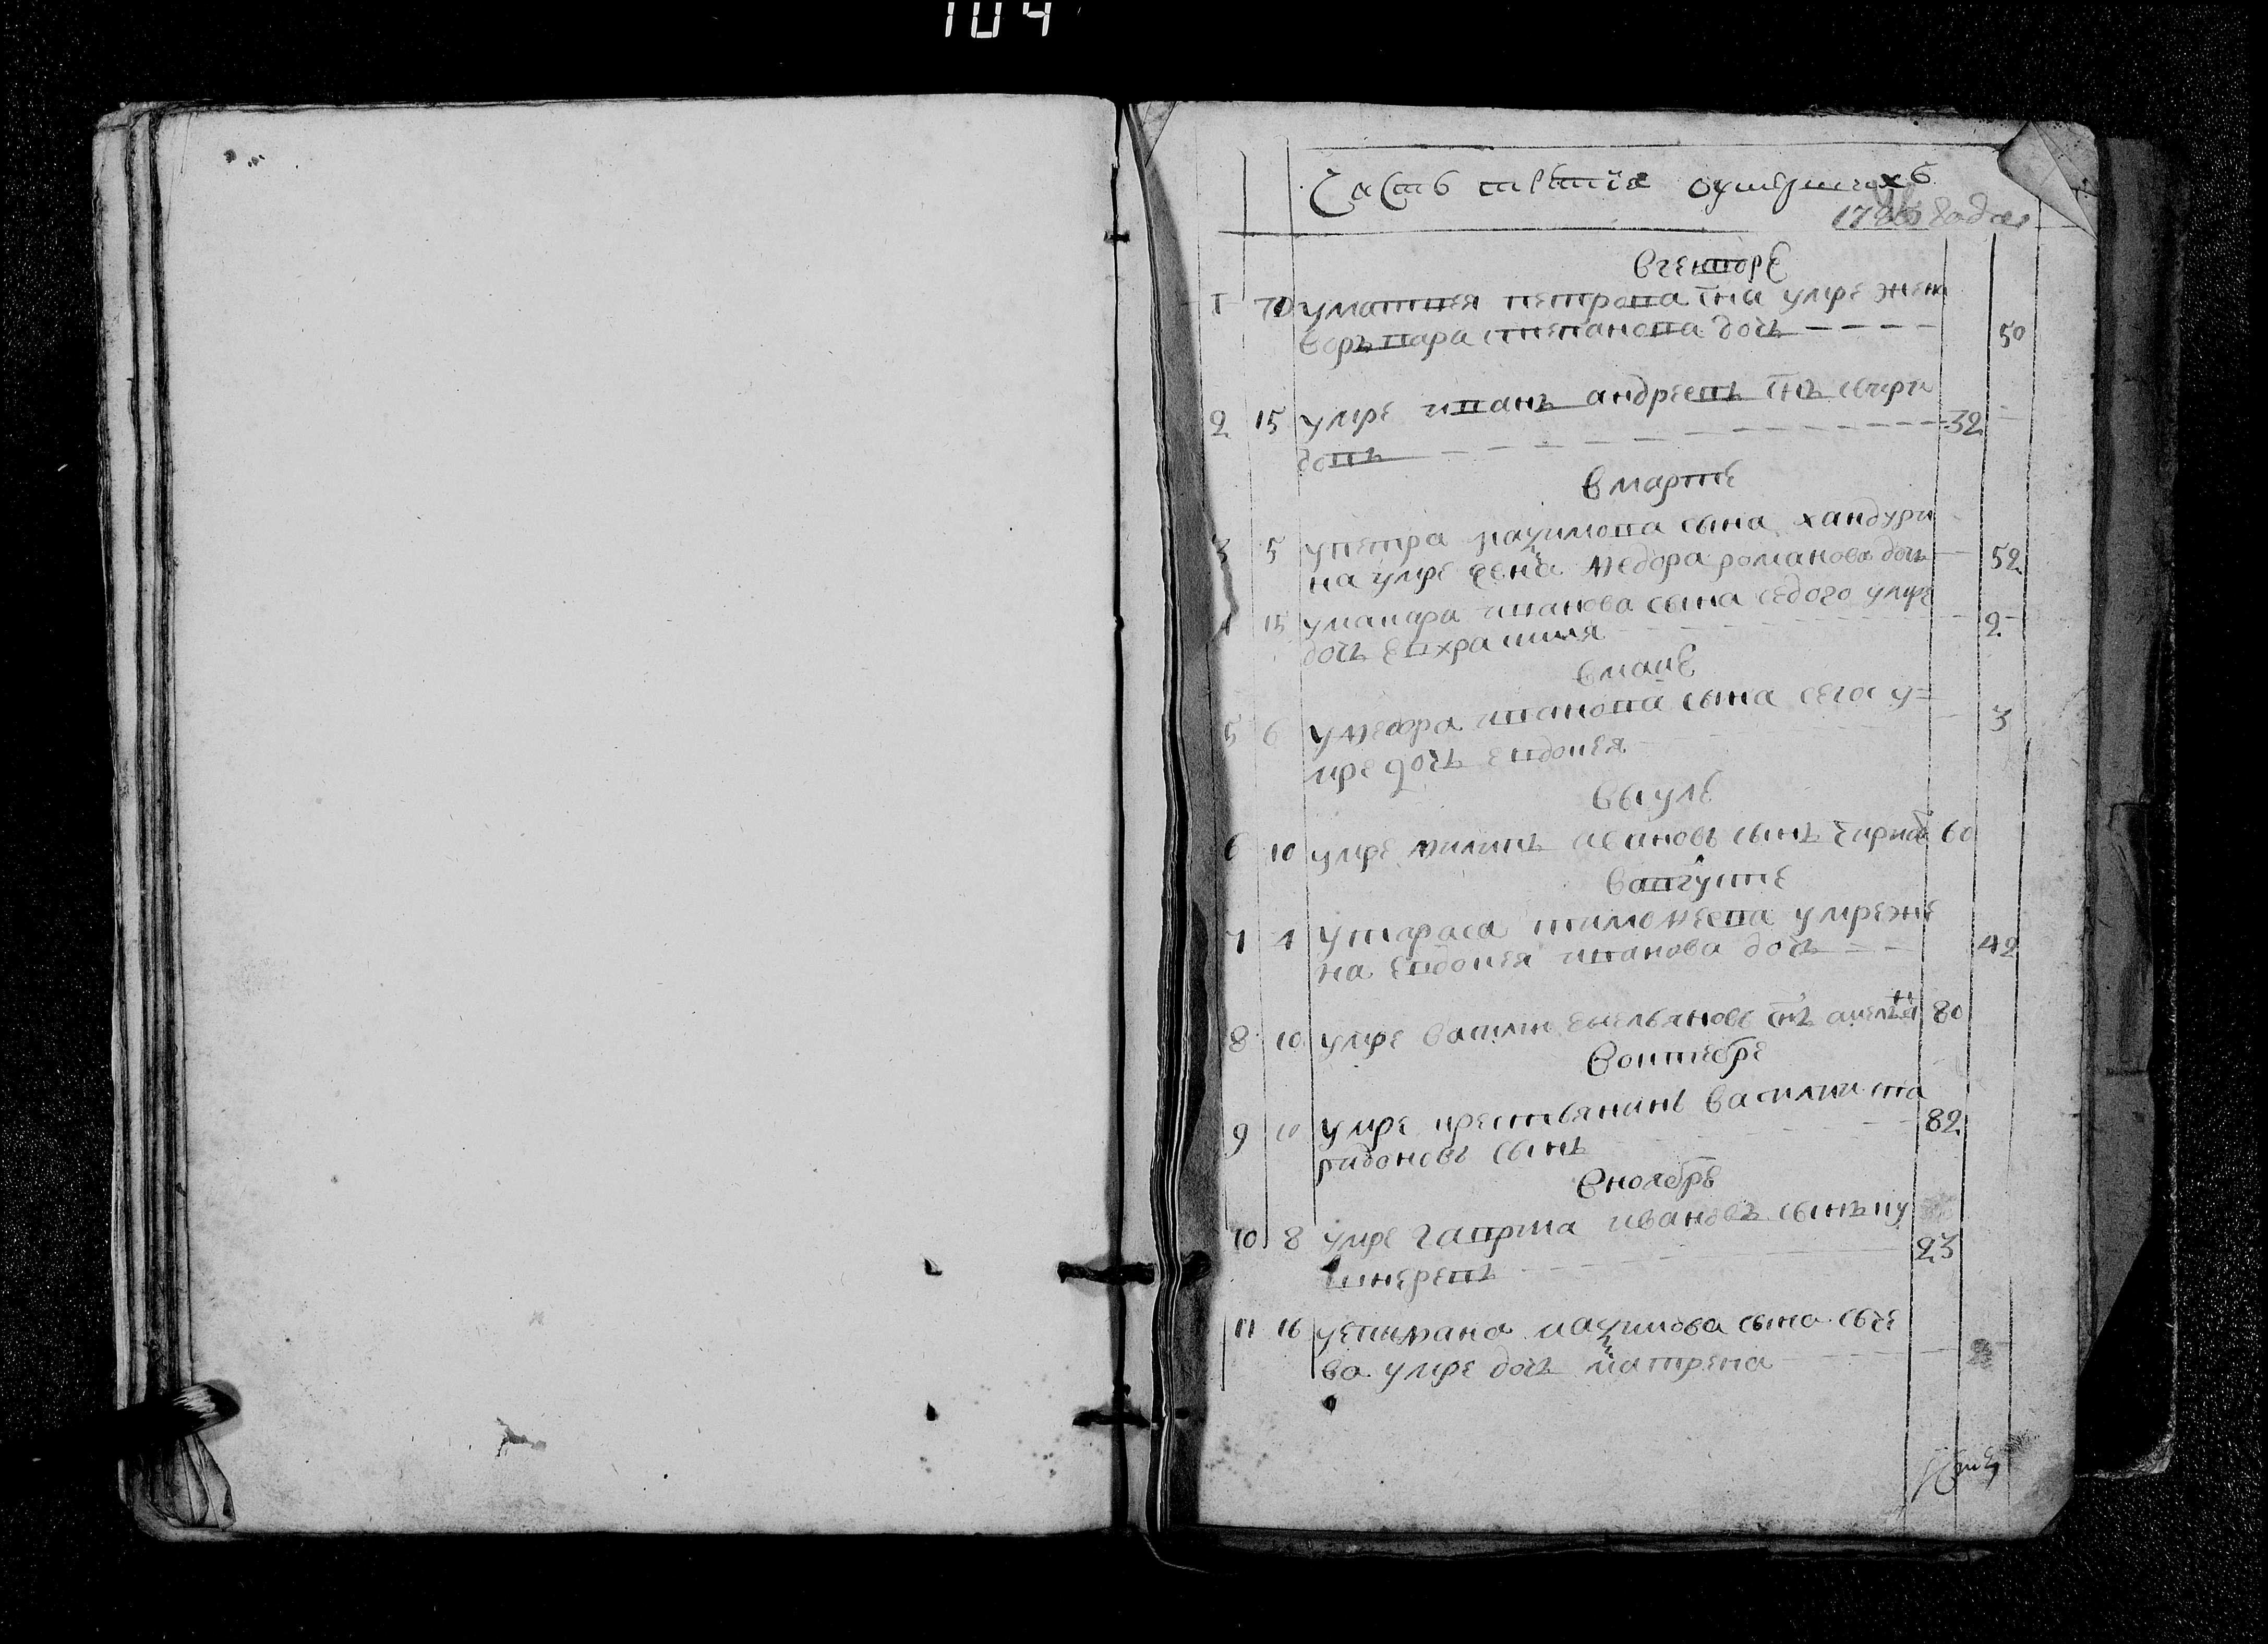 104
Часть третія оумершихъ
178 года
в генваре
1 10 у матвея петрова сна умре жена
варъвара степанова дочь 50
2 15 умре иванъ андреевъ снъ свири
довъ 32
в марте
3 5 у петра маѯимова сына хандури
на умре жена ѳедора романова дочь 52
4 15 у макара иванова сына седого умре
дочь евхрасиния 2
в маие
5 6 у ѳедора иванова сына сегос у=
мре дочь евдокея 3
в июле
6 10 умре ѳилипъ ивановъ сынъ 60
в августе
7 1 у тараса тимоѳеева умре же
на евдокея иванова дочь 42
8 10 умре василии емельяновъ снъ 80
в октебре
9 10 умре крестьянинъ василии спи
ридоновъ сынъ 82
в ноябре
10 8 умре гаврила ивановъ сынъ ку
23
11 16 у маѯимова сына сыче
ва умре дочь матрена